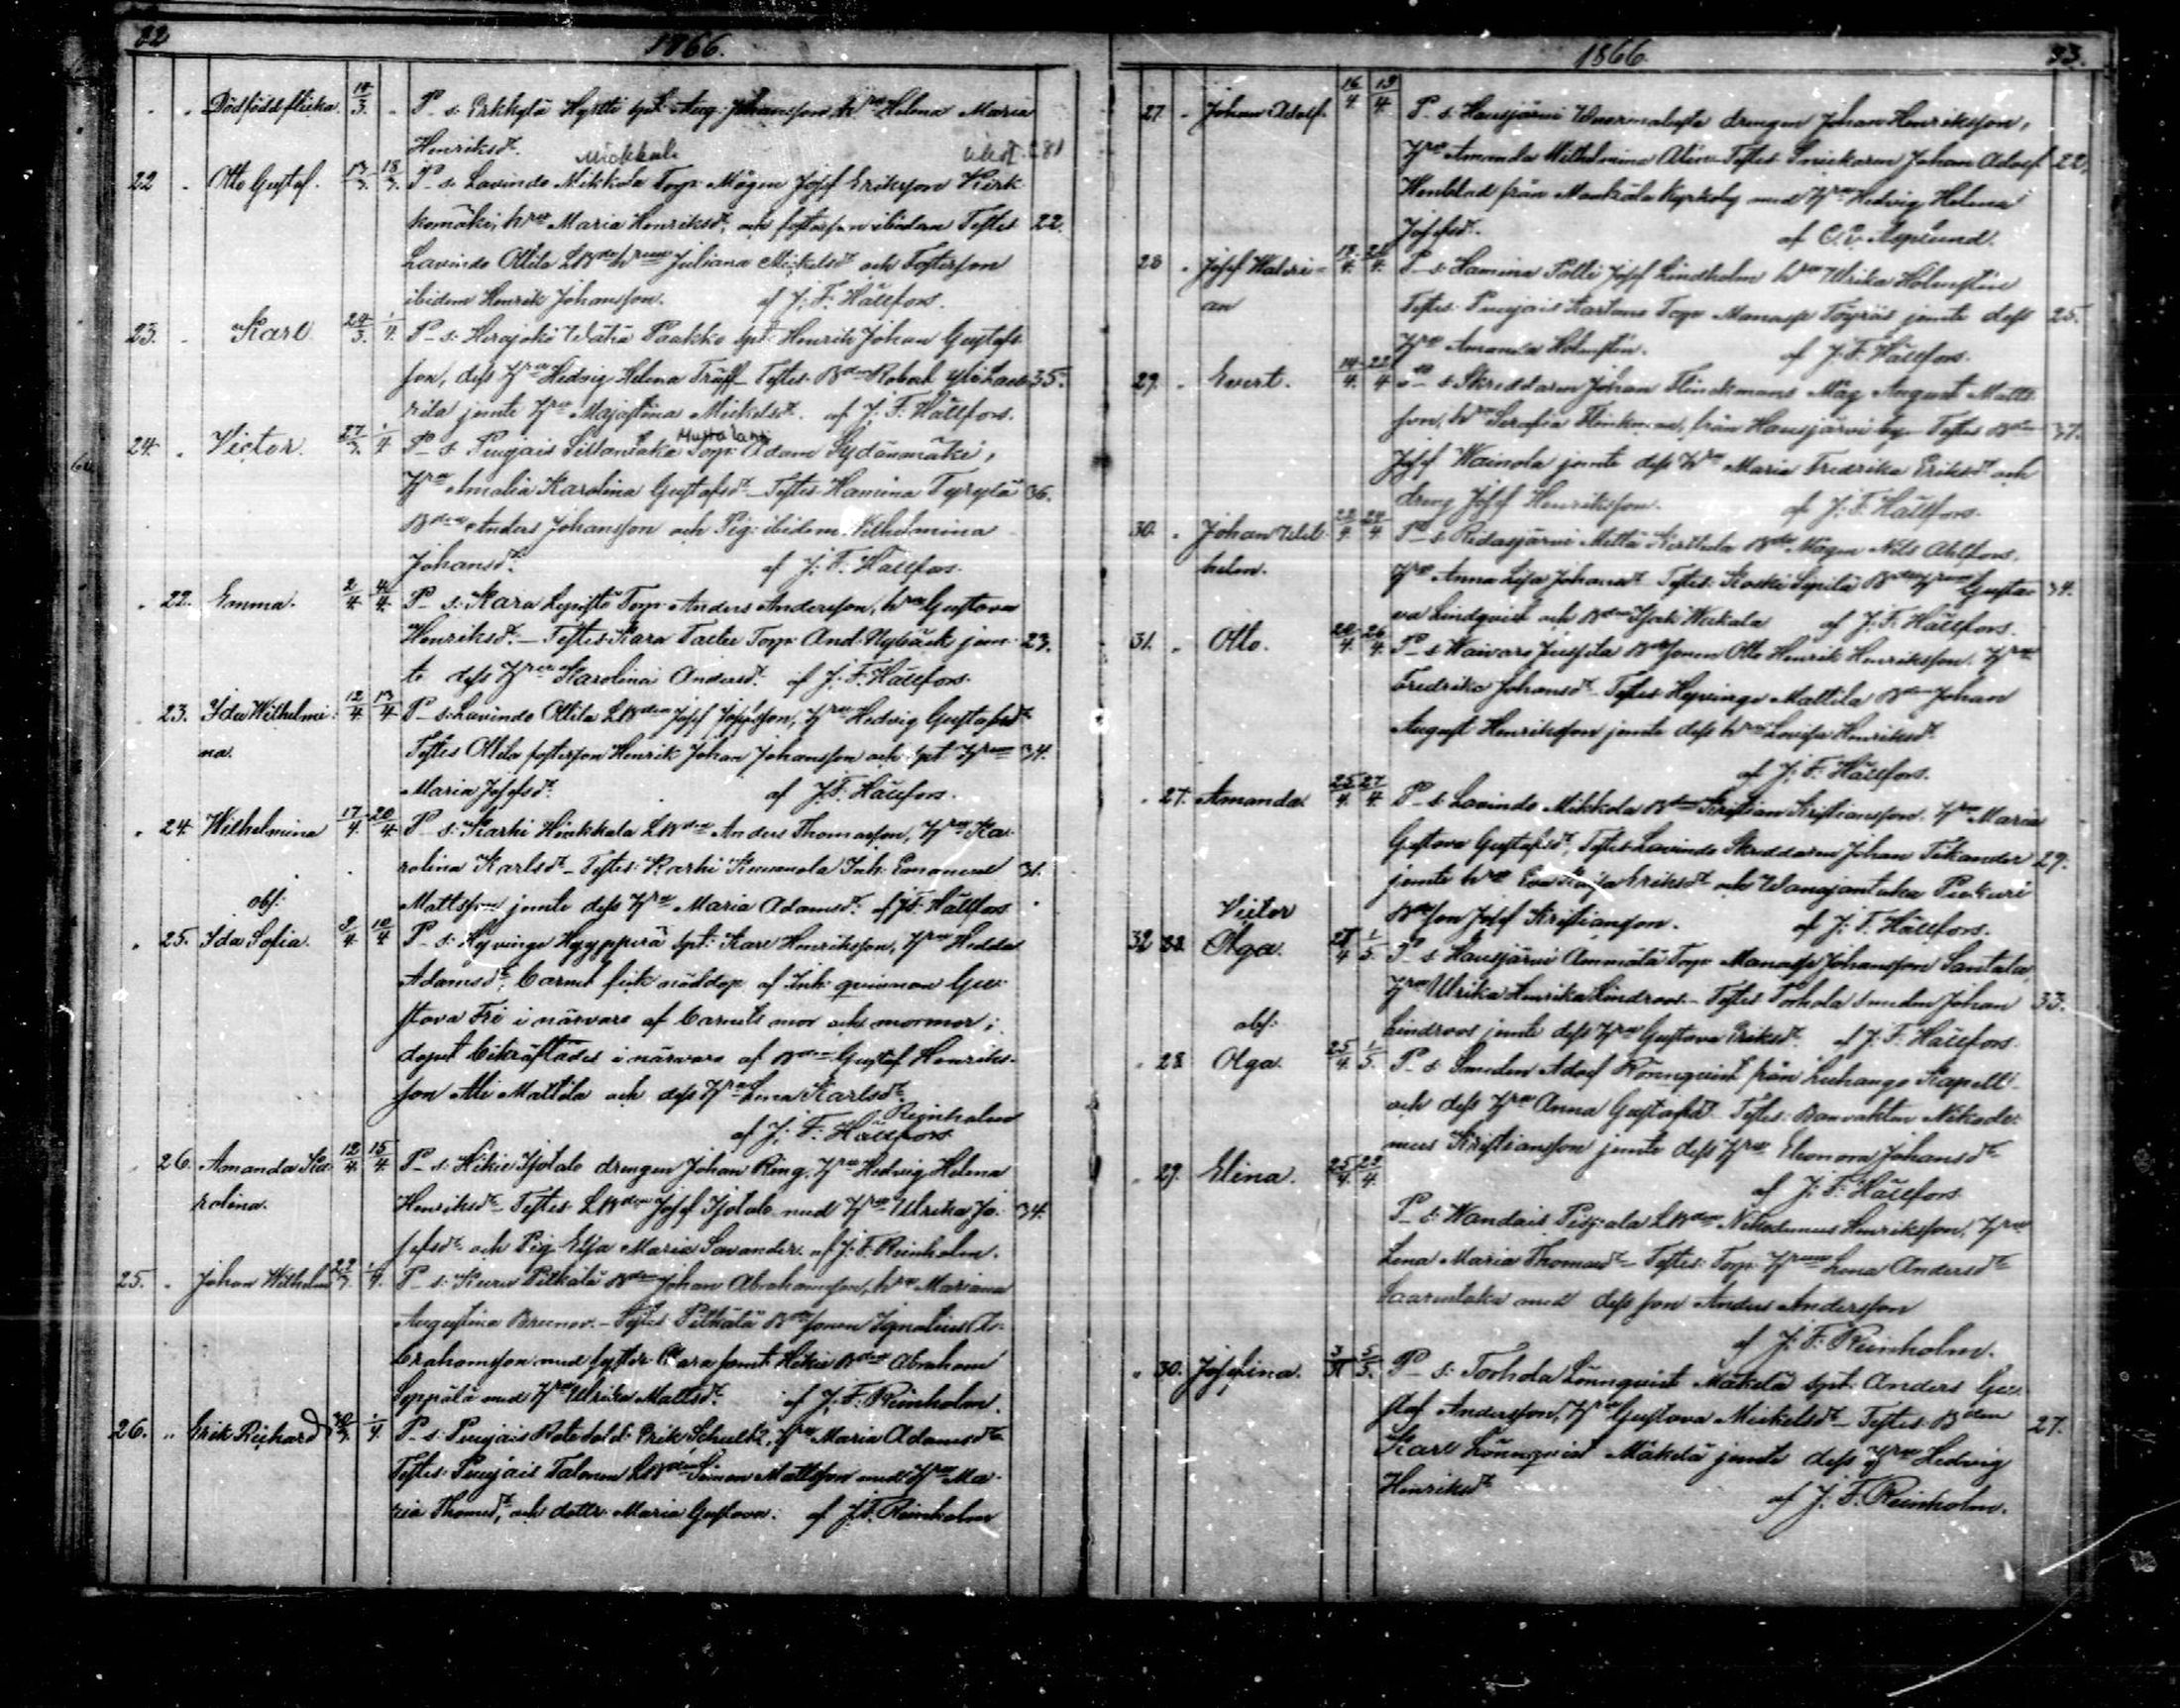 22
1866.
Dödfödd flicka. 14/3. P. s. Erkkylä Hyttti spt. Aug. Johansson h:ro Helena Maria
Henriksd:r.
Mickkali
22 Otto Gustaf. 13/3. 18/3. P. s. Lavinde Mikkola Torp. Mågen Josef Eriksson Kirk-
komäki, h:ro Maria Henriksd:r, och ibidem Testes 22.
Lavinde Ollila LB:de h:run Juliana Mickelsd:r och Fosterson
ibidem Henrik Johansson. af J. F. Hällfors.
23. Karl 24/3. 1/4. P. s. Herajoki Wätiä Paakko spt. Henrik Johan Gustafs-
son, dess H:ro Hedvig Helena Träff. Testes Robert 35.
rila jemte H:ro Majastina Mickelsd:r. af J. F. Hällfors.
24. Victor. 27/3. 1/4 P. s. Puujais Sillantaka Torp. Adam Sydänmäki,
H:ro Amalia Karolina Gustafsd:r. Testes Hamina Tyrylä 36.
B:den Anders Johansson och Pig. ibidem Wilhelmina
Johansd:r. af J. F. Hällfors.
22. Emma. 2/4. 4/4. P. s. Kara Lepistö Torp. Anders Andersson, h:ro Gustava
Henriksd:r. Testes Kara Torp. And. Nybäck jem- 23.
te dess H:ro Karolina Andersd:r. af J. F. Hällfors.
23. Ida Wilhelmi- 12/4. 13/4 P. s. Lavinde Ollila LB:den Josef Josefsson, H:ro Hedvig Gustafsd:r
na. Testes Ollila fosterson Henrik Johan Johansson och spt H:run 34.
Maria Josefsd:r. af J. F. Hällfors.
24 Wilhelmina 17/4. 20/4 P. s. Karhi Hinkkala LB:den Anders Thomasson, H:ro Ka-
rolina Karlsd:r. Testes: Karhi Inh: Emanuel 31.
Mattsson jemte dess H:ro Maria Adamsd:r. af J. F. Hällfors
obs:
25. Ida Sofia. 9/4. 10/4 P. s. Hyvinge Hyyppärä spt: Karl Henriksson, H:ro Hedda
Adamsd:r; barnet fick nöddop af Inh: qvinnan Gu-
stava Fri i närvaro af barnets mor och mormor;
dopet bekräftades i närvaro af B:den Gustaf Henriks-
son Ali Mattila och dess H:ro Lena Karlsd:r.
Reinholm
af J. F. Hällfors
26. Amanda Ka- 12/4. 15/4 P. s. Hikiä Ijotalo drengen Johan Ring, H:ro Hedvig Helena
rolina. Henriksd:r. Testes LB:den Josef Ijotalo med H:ro Ulrika Jo- 34.
sefsd:r och Pig. Elsa Maria Savander. af J. F. Reinholm.
25. Johan Wilhelm 1/4. P. s. Kuru Pitkälä B:den Johan Abrahamsson, h:ro Mariana
Augustina Brunov. Testes Pitkälä B:desonen Ignatius A-
brahamsson med syster Clara samt Hikiä B:den Abraham
Seppälä med H:ro Ulrika Mattsd:r. af J. F. Reinholm.
26. Erik Richard 30/3. 1/4. P. s. Puujais Rotesold: Erik Schultz, H:ro Maria Adamsd:r
Testes: Puujais Talonen LB:den Simon Mattsson med H:ro Ma-
ria Thomasd:r, och dotter Maria Gustava. af J. F. Reinholm
1866. 23.
27. Johan Adolf. 16/4. 19/4. P. s. Hausjärvi drengen Johan Henriksson,
H:ro Amanda Wilhelmina Alin Testes Snickaren Johan Adolf 22.
Wenblad från Mankala Kyrkoby med H:ro Hedvig Helena
Josefsd:r. af C. v. Asplund.
28. Josef Waleri- P. s. Hamina Polli Josef Lindholm h:ro Ulrika Holmsten
an Testes: Puujais Kartano Torp. Manasse Töyräs jemte dess 25.
H:ro Amanda Holmsten. af J. F. Hällfors.
29. Evert. 14/4. 22/4 P. s. Skreddaren Johan Flinckmans Måg August Matts-
son, h:ro Serafia Flinkman, från Hausjärvi by. Testes B:den 37.
Josef Wainola jemte dess H:ro Maria Fredrika Eriksd:r och
dreng Josef Henriksson. af J. F. Hällfors.
30. Johan Wil- 22/4. 24/4. P. s. Ridasjärvi Mettä Kerthola B:de Mågen Nils Ahlfors,
helm. H:ro Anna Lisa Johansd:r. Testes: Koski Sepilä Gusta- 34.
va Lindqvist och B:den Isak Weikala af J. F. Hällfors.
31. Otto. 20/4. 26/4. P. s. Waivaro Juspila B:desonen Otto Henrik Henriksson. H:ro
Fredrika Johansd:r. Testes Hyvinge Mattila B:den Johan
August Henriksson jemte dess h:ro Lovisa Henriksd:r.
af J. F. Hällfors.
27. Amanda 25/4. 27/4 P. s. Lavinde Mikkola B:den Kristian Kristiansson. H:ro Maria
Gustava Gustafsd:r; Testes Lavinde Skreddaren Johan Tikander 29.
jemte h:ro Eva Kajsa Eriksd:r och Wanajantaka Puukuri
B:deson Josef Kristiansson. af J. F. Hällfors.
Victor
32 Olga. 1/5. P. s. Hausjärvi Ammätä Torp. Manasse Johansson Santala
H:ro Ulrika Henrika Lindroos. Testes Torhola smeden Johan 33.
Lindroos jemte dess H:ro Gustava Eriksd:r. af J. F. Hällfors.
obs:
28 Olga. 25/4. 1/5. P. s. Smeden Adolf Rönnqvist från Kapell
och dess H:ro Anna Gustafsd:r. Testes: Banvakten Nikode-
mus Kristiansson jemte dess H:ro Eleonora Johansd:r
af J. F. Hällfors
29. Elina. 25/4. 29/4.
P. s. Wandais Pisjala LB:den Nikodemus Henriksson, H:ro
Lena Maria Thomasd:r. Testes: Torp: H:run Lena Andersd:r
Saarentaka med dess son Anders Andersson
af J. F. Reinholm.
30. Josefina. 5/5. P. s. Torhola Lönnqvist Mäkelä spt. Anders Gu-
staf Andersson, H:ro Gustava Mickelsd:r. Testes B:den 27.
Karl Lönnqvist Mäkelä jemte dess H:ro Hedvig
Henriksd:r
af J. F. Reinholm.